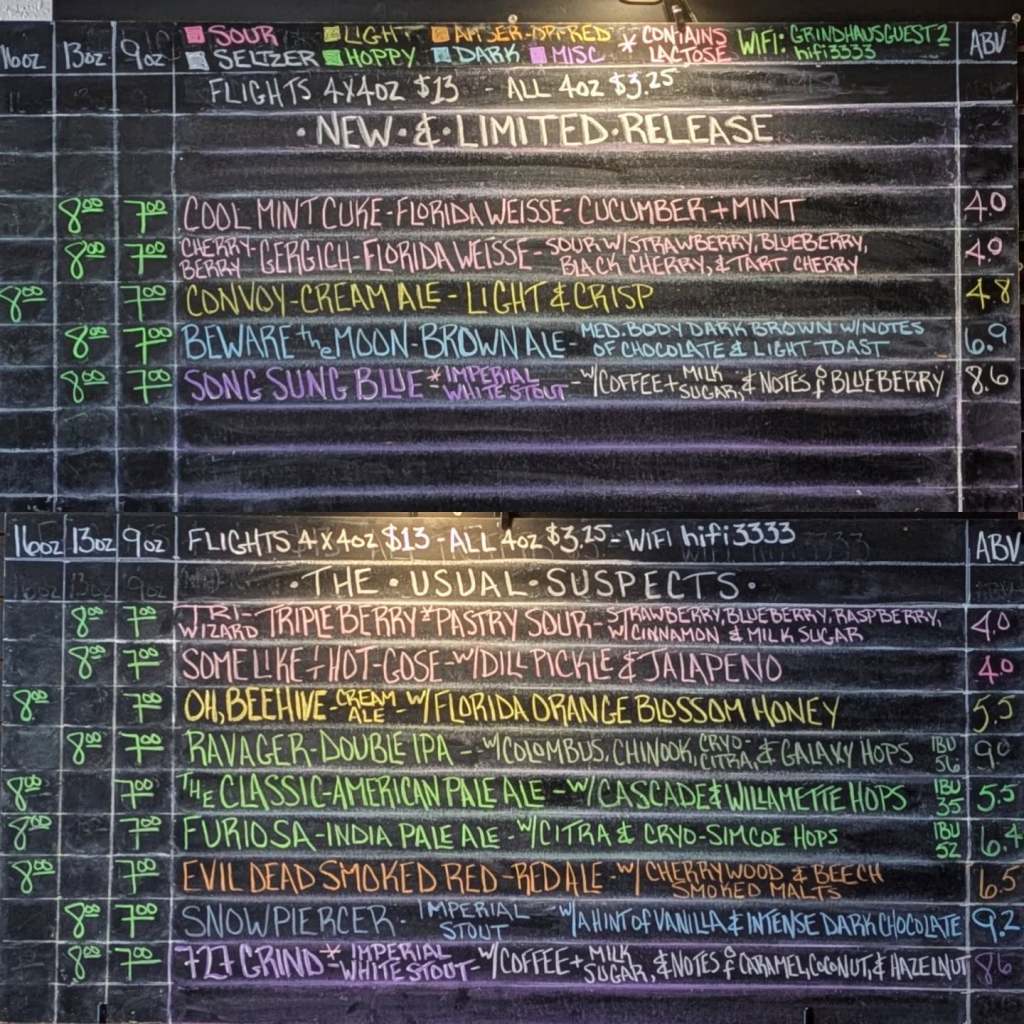 SOUR LIGHT AMBER-OR-RED * CONTAINS LACTOSE WIFI: GRINDHAUSGUEST2 hifi3333
16oz 13oz 9oz SELTZER HOPPY DARK MISC ABV
FLIGHTS 4x4oz $13 - ALL 4oz $3.25
·NEW·&·LIMITED·RELEASE
8.00 7.00 COOL MINT CUKE-FLORIDA WEISSE-CUCUMBER+MINT 4.0
8.00 7.00 CHERRY-BERRY GERGICH-FLORIDA WEISSE-SOUR W/STRAWBERRY, BLUEBERRY, BLACK CHERRY, & TART CHERRY 4.0
8.00 7.00 CONVOY-CREAM ALE-LIGHT & CRISP 4.8
8.00 7.00 BEWARE the MOON-BROWN ALE-MED. BODY DARK BROWN W/NOTES OF CHOCOLATE & LIGHT TOAST 6.9
8.00 7.00 SONG SUNG BLUE*IMPERIAL WHITE STOUT-W/COFFEE+MILK SUGAR, & NOTES OF BLUEBERRY 8.6
16oz 13oz 9oz FLIGHTS 4x4oz $13-ALL 4oz $3.25-WIFI hifi3333 ABV
·THE·USUAL·SUSPECTS·
8.00 7.00 TRI-WIZARD TRIPLE BERRY*PASTRY SOUR-STRAWBERRY, BLUEBERRY, RASPBERRY, W/CINNAMON & MILK SUGAR 4.0
8.00 7.00 SOME LIKE IT HOT-GOSE-W/DILL PICKLE & JALAPENO 4.0
8.00 7.00 OH, BEEHIVE-CREAM ALE-W/FLORIDA ORANGE BLOSSOM HONEY 5.5
8.00 7.00 RAVAGER-DOUBLE IPA--W/COLOMBUS, CHINOOK, CRYO-CITRA, & GALAXY HOPS IBU 56 9.0
8.00 7.00 THE CLASSIC-AMERICAN PALE ALE-W/CASCADE & WILLAMETTE HOPS IBU 35 5.5
8.00 7.00 FURIOSA-INDIA PALE ALE-W/CITRA & CRYO-SIMCOE HOPS IBU 52 6.4
8.00 7.00 EVIL DEAD SMOKED RED-RED ALE-W/CHERRYWOOD & BEECH SMOKED MALTS 6.5
8.00 7.00 SNOWPIERCER-IMPERIAL STOUT-W/A HINT OF VANILLA & INTENSE DARK CHOCOLATE 9.2
8.00 7.00 727 GRIND*IMPERIAL WHITE STOUT-W/COFFEE+MILK SUGAR, & NOTES OF CARAMEL, COCONUT, & HAZELNUT 8.6